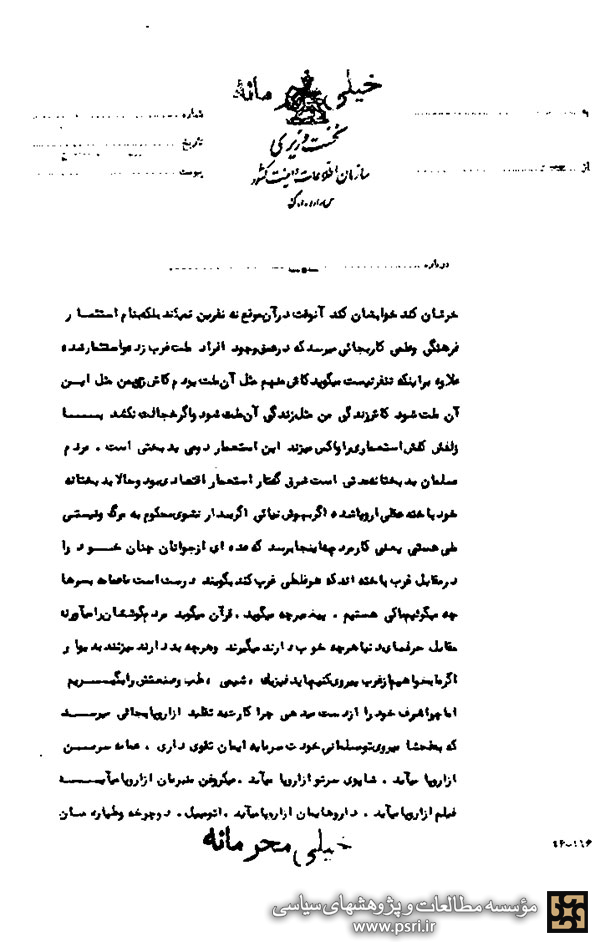 خیلی محرمانه
نخست وزیری
سازمان اطلاعات و امنیت کشور
شماره
تاریخ
پیوست
به
از
درباره
خرشان کند خوابشان کند آنوقت در آن موقع نه نفرین نمیکند بلکه بنام استثمار
فرهنگی وطنی کار بجائی میرسد که در عمق وجود افراد ملت غرب زده و استثمار شده
علاوه بر اینکه تنفر نیست میگوید کاش منهم مثل آن ملت بودم کاش زن من مثل این
آن ملت شود کاش زندگی من مثل زندگی آن ملت شود و اگر خجالت نکشد با
زلفش کفش استعماری را واکس میزند این استعمار دومی بدبختی است . مردم
مسلمان بدبختانه مدتی است شرق گفتار استعمار اقتصادی بود و حالا بدبختانه
خود باخته عقلی اروپا شده اگر بهوش نیائی اگر بیدار نشوی محکوم به مرگ و نیستی
ملی هستی یعنی کار مرد چه اینجا برسد که عده ای از جوانان چنان خود را
در مقابل غرب باخته اند که هر غلطی غرب کند بگویند درست است ما عمامه بسرها
چه میگوئیم ما کی هستیم . پیغمبر چه میگوید . قرآن چه میگوید مردم گوششان را میآورند
مقابل حرفهای دنیا هرچه خوب دارند میگیرند و هرچه بد دارند میزنند بدیوار
اگر ما بخواهیم از غرب پیروی کنیم باید فیزیک ، شیمی ، طب و صنعتش را بگیریم
اما چرا شرف خود را از دست میدهی چرا کارت به تقلید از اروپا بجائی میرسد
که بفحشا میروی تو مسلمانی خودت سرمایه ایمان تقوی داری ، عمامه سر من
از اروپا میآید . شاپوی سر تو از اروپا میآید . میکروفن منبرمان از اروپا میآید
فیلم از اروپا میآید . داروهایمان از اروپا میآید . اتومبیل . دوچرخه و طیاره مان
خیلی محرمانه
۴۶-۱۱۶
مؤسسه مطالعات و پژوهشهای سیاسی
www.psri.ir